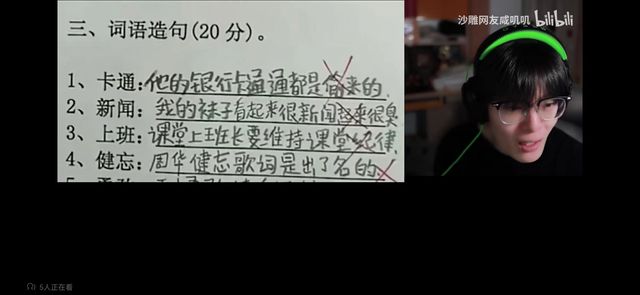 三、词语造句(20 分)。
1、卡通:他的银行卡通通都是偷来的.
2、新闻:我的袜子看起来很新闻起来很臭
3、上班:课堂上班长要维持课堂纪律.
4、健忘:周华健忘歌词是出了名的.
沙雕网友咸叽叽 bilibili
5人正在看